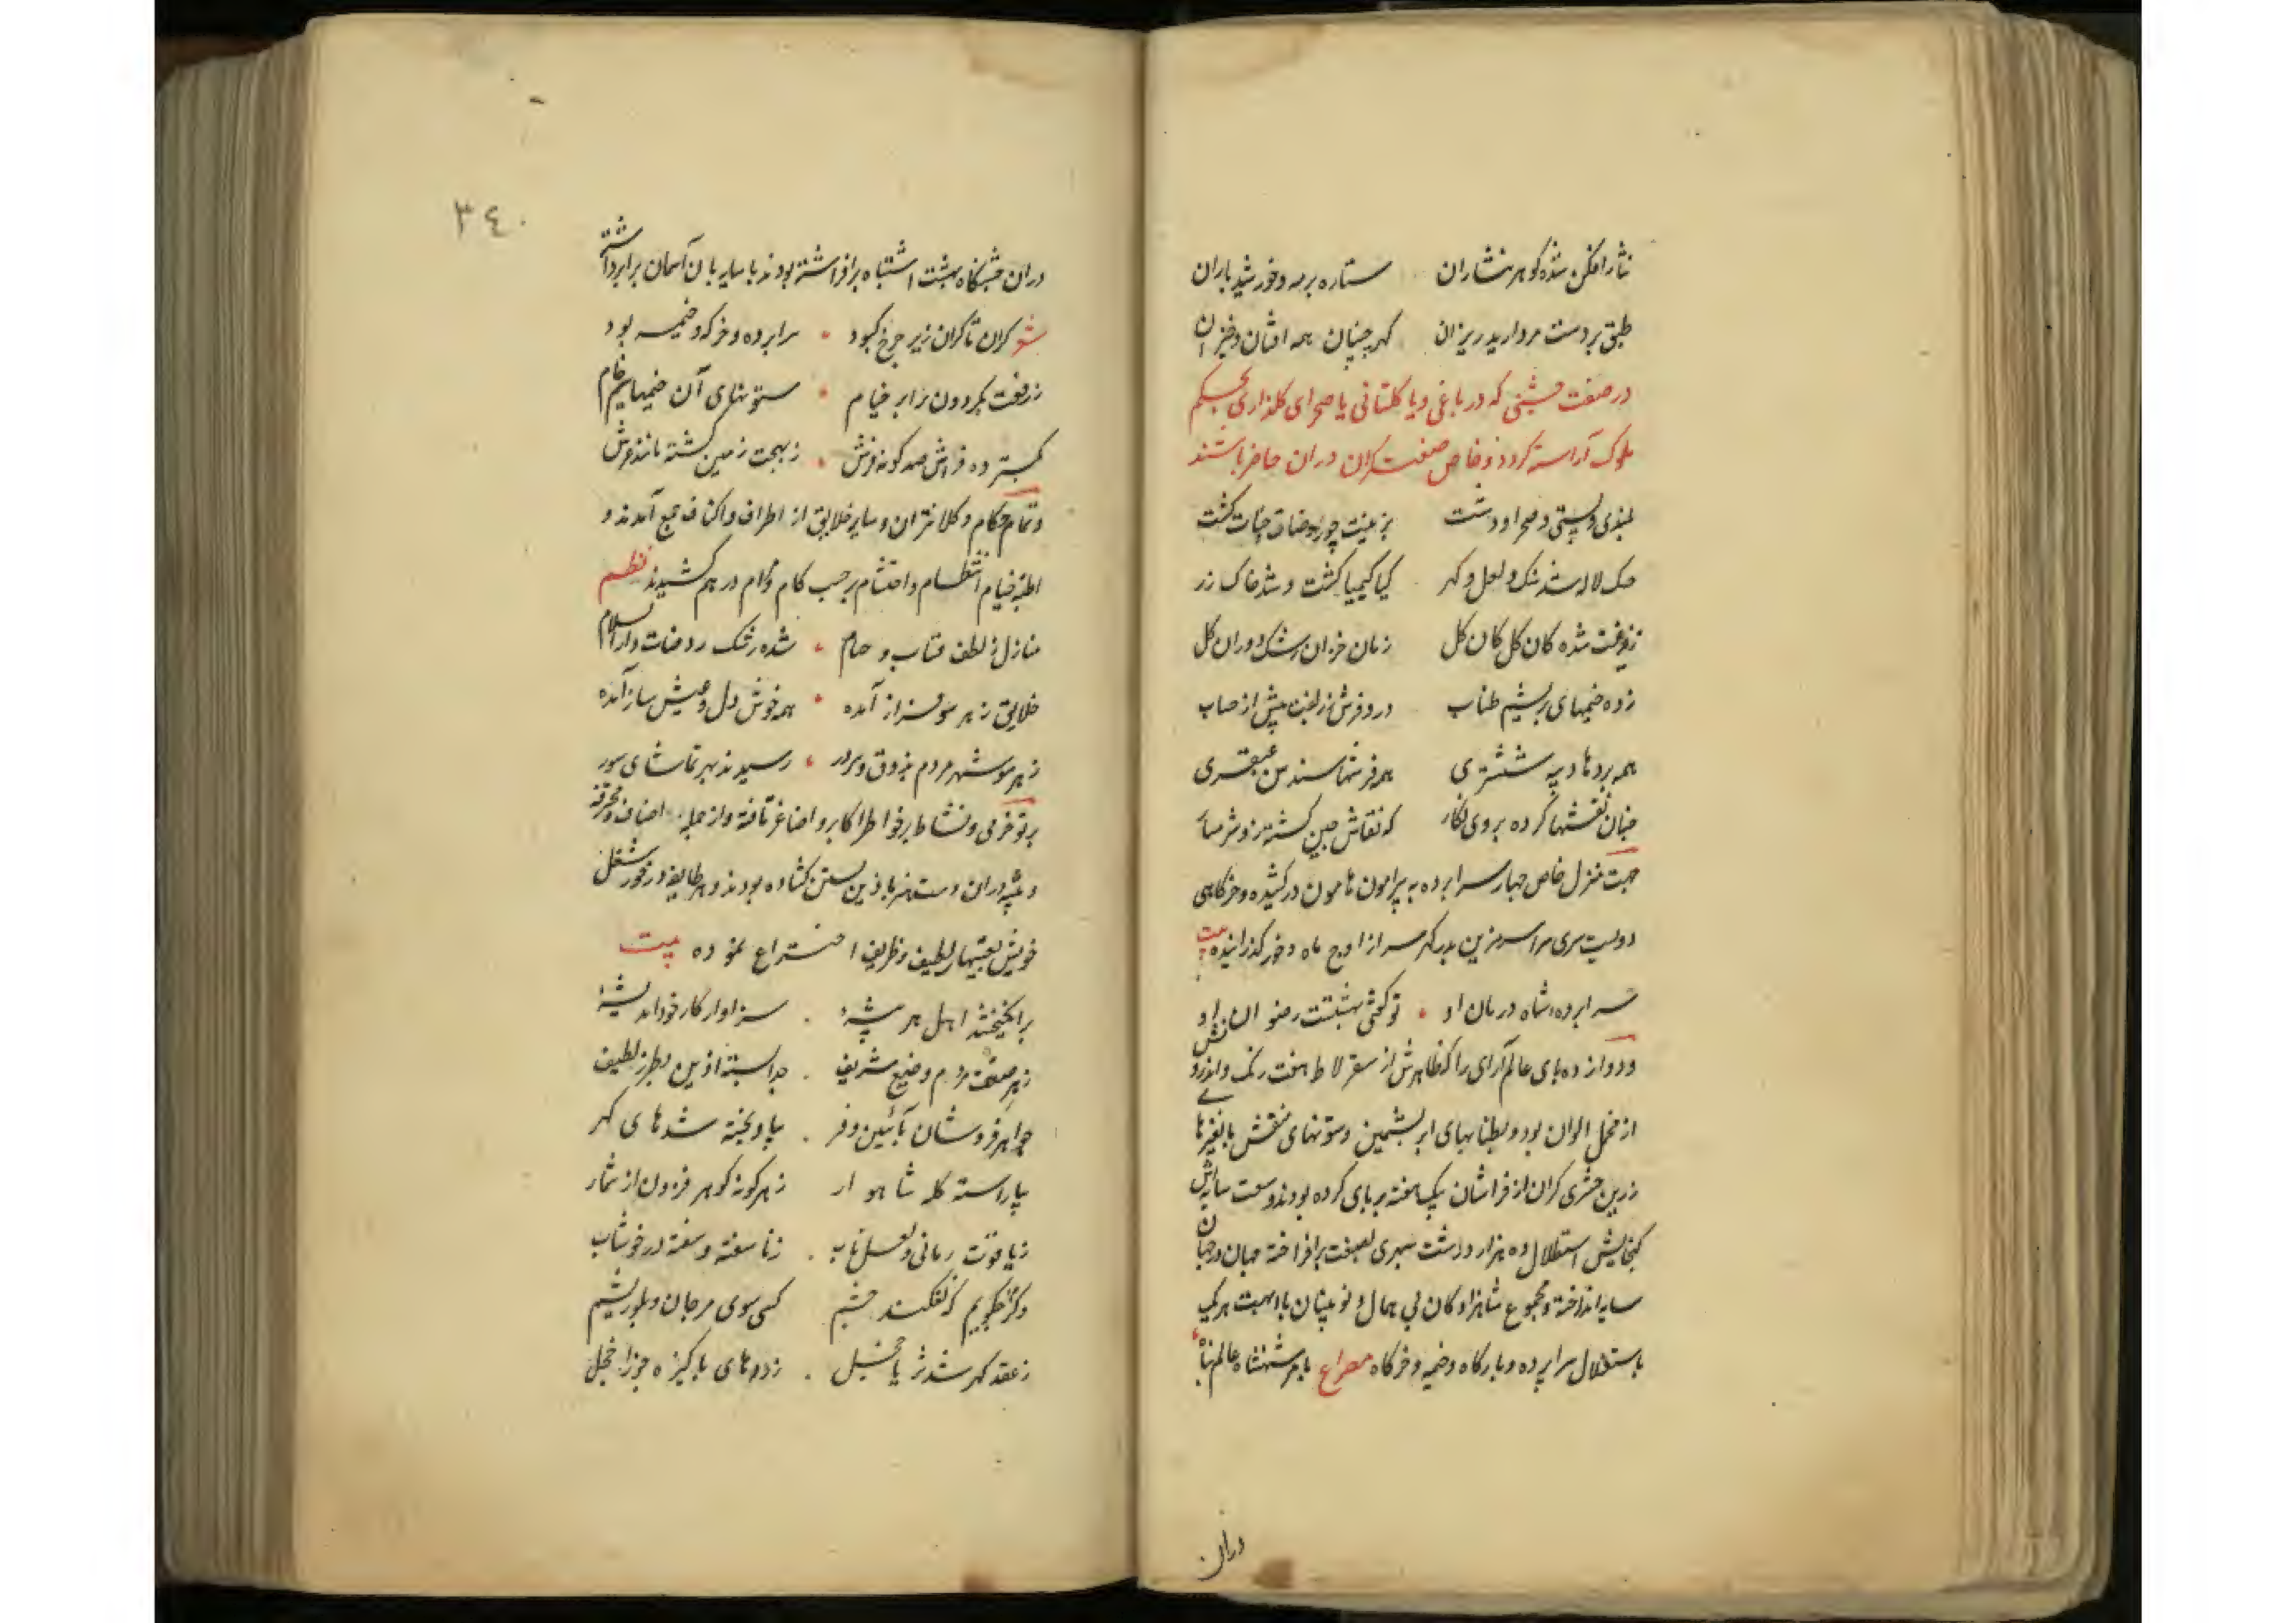 نثار افکن شده کوهر نثاران ستاره بر مه و خورشید باران
طبق بر دست مروارید ریزان کهر چینان همه افتان و خیزان
در صفت جشنی که در باغی و یا کلستانی یا صحرای کلذاری بحکم
ملوک آراسته کردد و خاص صنعت کران دران حاضر باشند
بلندی و پستی و صحرا و دشت بزینت چو روضات جنات کشت
لاله شد سنک و لعل و کهر کیا کیمیا کشت و شد خاک زر
شده کان کل کان کل زمان خزان رشک دوران کل
زده خیمهای بریشم طناب درو فرش زربفت بیش از حساب
همه بردها دیبه ششتری همه فرشها سندس عبقری
چنان نقشها کرده بر وی نکار که نقاش چین کشته زو شرمسار
جهت منزل خاص چهار سرابرده به پیرامون هامون در کشیده و خرکاهی
دویست سری سر از اوج ماه و خور کذرانیده بیت
سرابرده شاه در مان او تو کفتی بهشتست رضوان او
و دوازده بای عالم آرای را که ظاهرش از سقرلاط هفت رنک و اندرونش
از مخمل الوان بود و بطنابهای ابریشمین و ستونهای منقش
زرین حشری کران از فراشان بیک هفته بر بای کرده بودند و سعت سایش
کنجایش استظلال ده هزار داشت سبهری بصفت برافراخته جهان در جهان
سایه انداخته و مجموع شاهزادکان بی همال و نوینان با ابهت هر یک
باستقلال سرابرده و بارکاه و خیمه و خرکاه مصراع بامر شهنشاه عالم پناه
دران
٣٤٠
دران جشنکاه بهشت اشتباه برافراشته بودند با سایه بان آسمان برابر داشته
شعر کران تا کران زیر چرخ کبود سرابرده و خرکه و خیمه بود
ز رفعت بکردون برابر خیام ستونهای آن خیمها سیم خام
بکسترده فراش صد کونه فرش ز بهجت زمین کشته مانند عرش
و تمام حکام و کلانتران و سایر خلایق از اطراف و اکناف جمع آمدند و
اطناب خیام انتظام و احتشام بر حسب کام و مرام در هم کشیدند نظم
منازل ز لطف قباب و خیام شده رشک روضات دار السلام
خلایق ز هر سو فراز آمده همه خوش دل و عیش ساز آمده
ز هر سو شهر مردم بذوق و سرور رسیدند بهر تماشای سور
پرتو خرمی و نشاط بر خواطر اکابر و اصاغر تافته و از جمله اصناف محترفه
و پیشه وران دست هنر باذین بستن کشاده بودند و هر طایفه در خور شغل
خویش لطیف و ظریف اختراع نموده بیت
برانکیختند اهل هر پیشهٔ سزاوار کار خود اندیشهٔ
ز هر صنعت مردم وضیع شریف جدا بسته اذین بطرز لطیف
جواهر فروشان بآئین و فر بیاویخته شدهای کهر
بیاراسته کله شاهوار ز هر کونه کوهر فزون از شمار
ز یاقوت رمانی و لعل ناب ز ناسفته و سفته در خوشاب
کسی سوی مرجان و بلور
ز عقد کهر شد ثریا خجل ز درهای باکیزه جوزا خجل